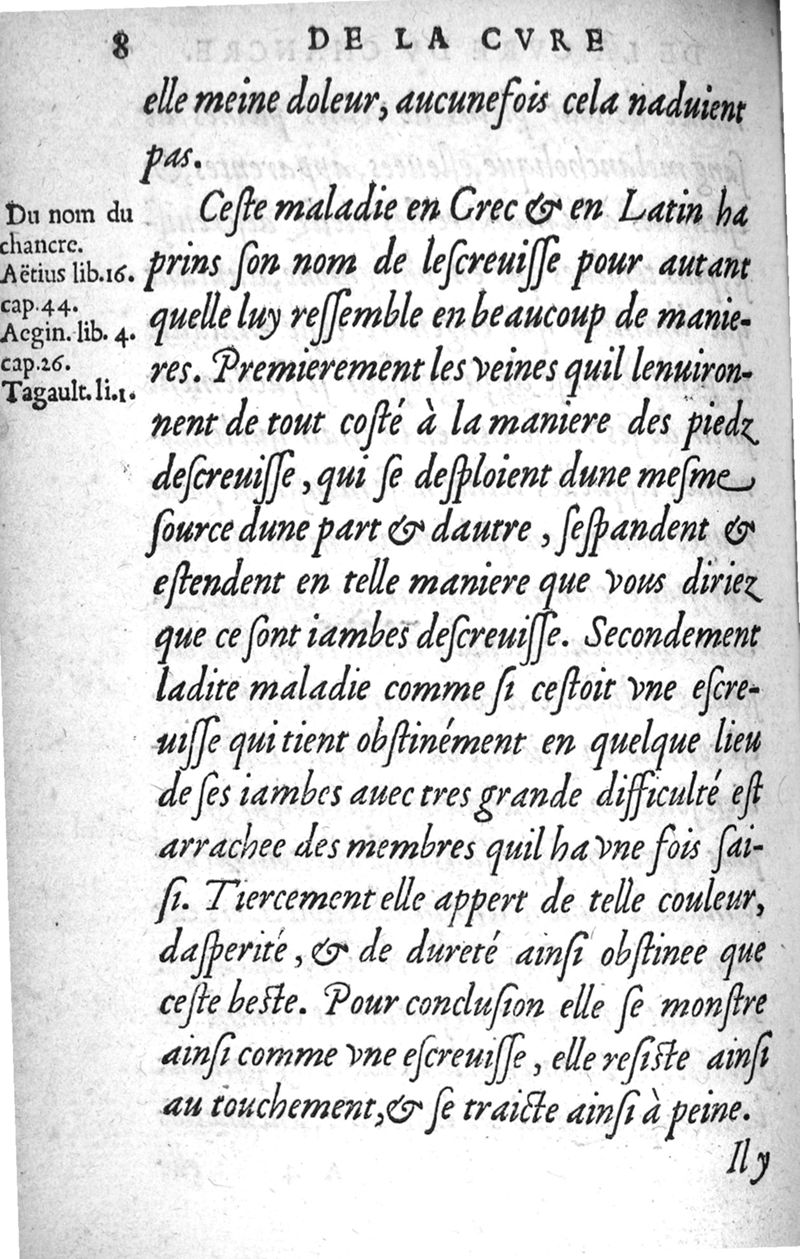 8 DE LA CVRE
elle meine doleur, aucunefois cela naduient
pas.
Du nom du
chancre.
Aëtius lib.16.
cap.44.
Aegin. lib. 4.
cap.26.
Tagault. li.1.
Ceſte maladie en Grec & en Latin ha
prins ſon nom de leſcreuiſſe pour autant
quelle luy reſſemble en beaucoup de manie-
res. Premierement les veines quil lenuiron-
nent de tout coſté à la maniere des piedz
deſcreuiſſe, qui ſe deſploient dune meſme
ſource dune part & dautre, ſeſpandent &
eſtendent en telle maniere que vous diriez
que ce ſont iambes deſcreuiſſe. Secondement
ladite maladie comme ſi ceſtoit vne eſcre-
uiſſe qui tient obſtinément en quelque lieu
de ſes iambes auec tres grande difficulté eſt
arrachee des membres quil ha vne fois ſai-
ſi. Tiercement elle appert de telle couleur,
daſperité, & de dureté ainſi obſtinee que
ceſte beſte. Pour concluſion elle ſe monſtre
ainſi comme vne eſcreuiſſe, elle reſiſte ainſi
au touchement, & ſe traicte ainſi à peine.
Il y